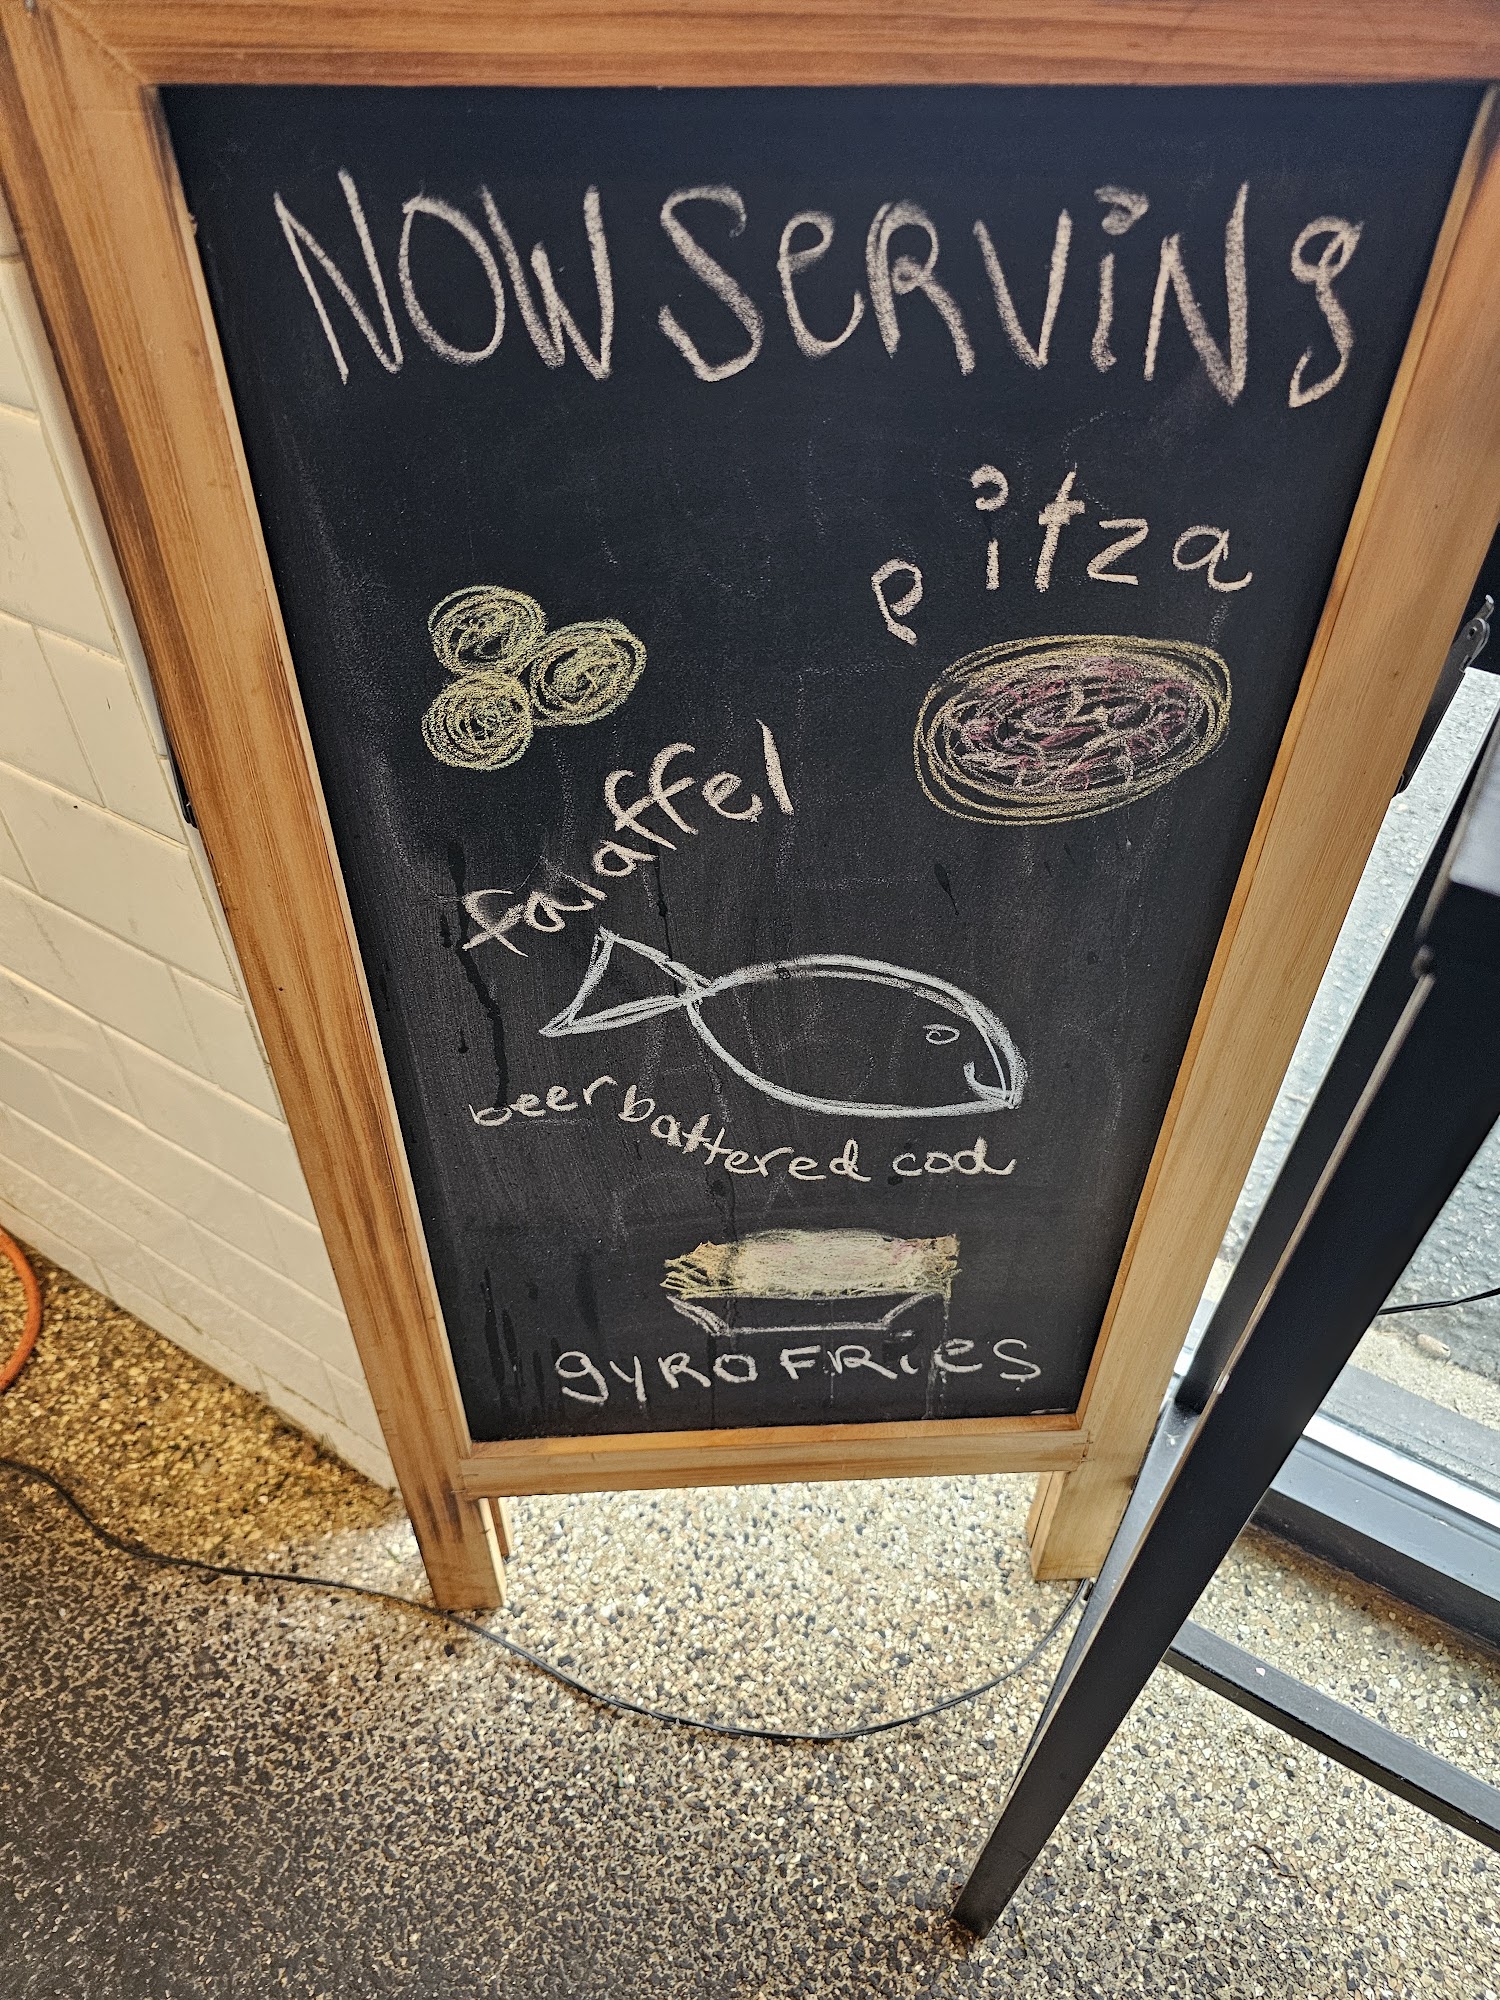 NOW SERViNg
pitza
falaffel
beer battered cod
gyRO FRieS